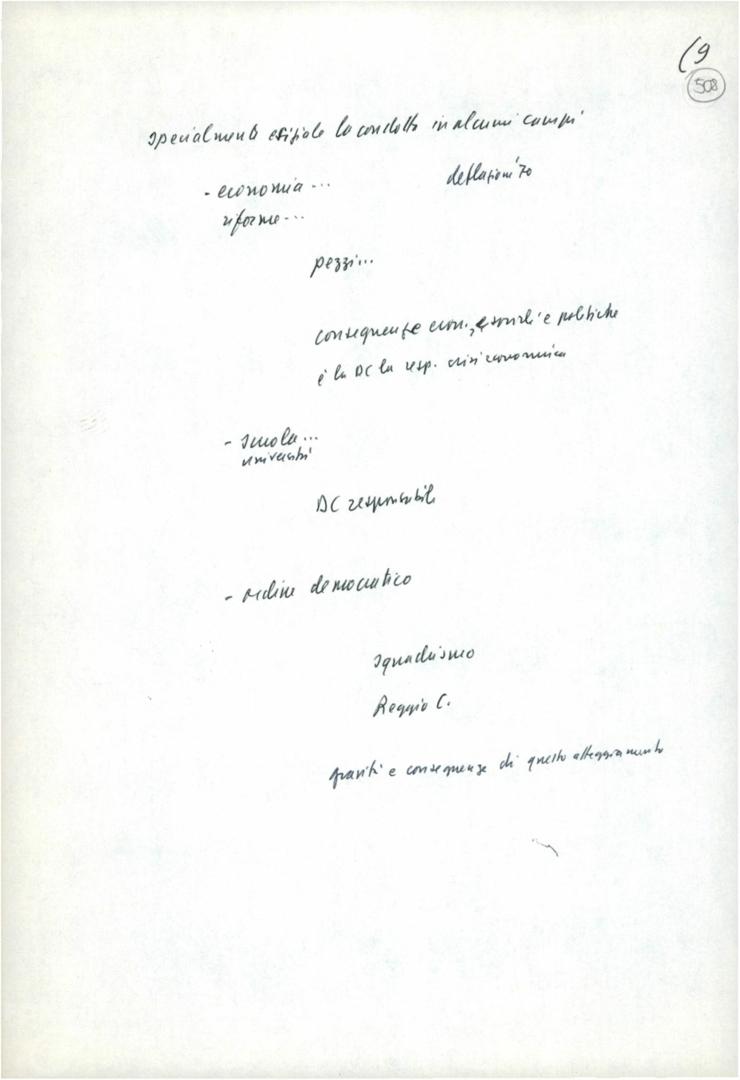 (9
508
specialmente esiziale la condotta in alcuni campi
- economia... deflazione '70
riforme...
pezzi...
conseguenze econ., sociali e politiche
è la DC la resp. crisi economica
- scuola...
università
DC responsabile
- ordine democratico
squadrismo
Reggio C.
gravità e conseguenze di questo atteggiamento